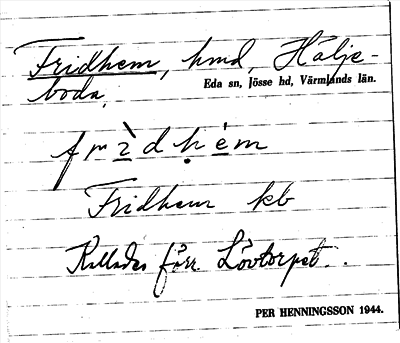 Fridhem, hmd, Hälje-
boda,
Eda sn, Jösse hd, Värmlands län.
frìdhém
Fridhem kb
Kallades förr Lövtorpet.
PER HENNINGSSON 1944.